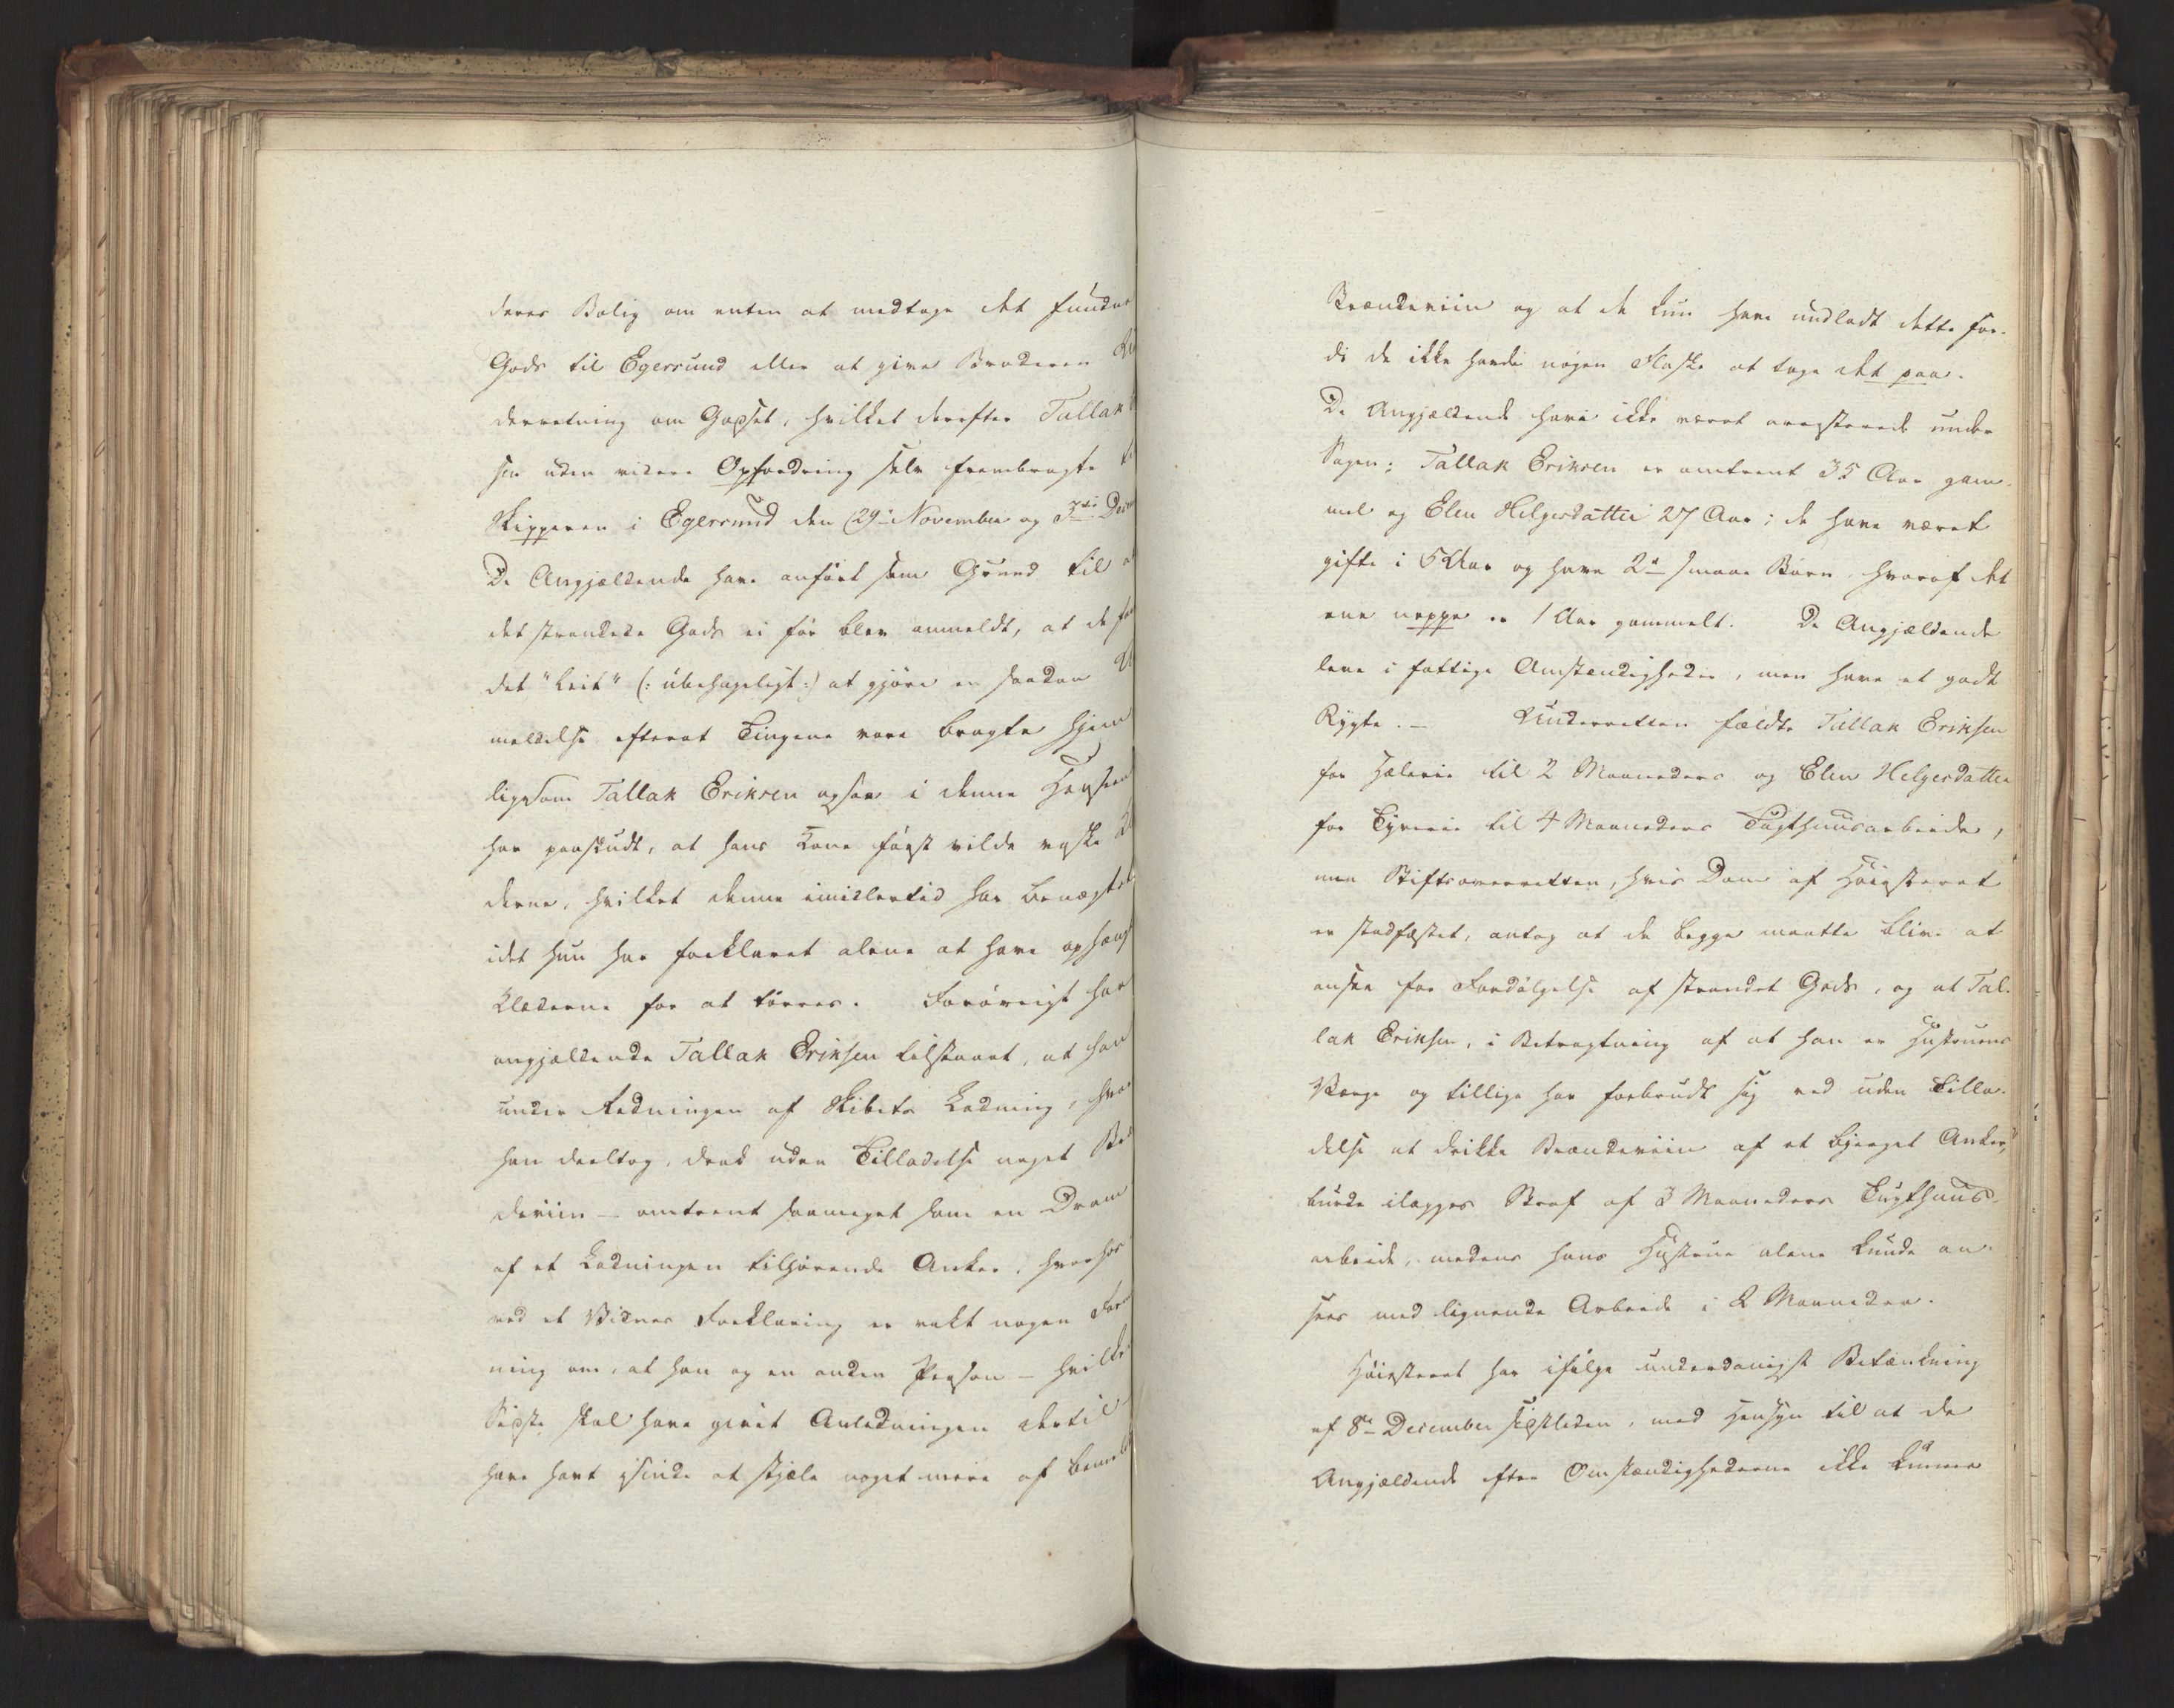 deres Bolig om enten at medtage det fundne
Gods til Egersund eller at give Broderen
derretning om Godset, hvilket derefter Tallak
sen uden videre Opfordring selv frembragte
Skipperen i Egersund den 29de November og 3die
De Angjældende have anført som Grund til
det strandede Gods ei før blev anmeldt, at de
det "leit" (: ubehageligt :) at gjøre en saadan
meldelse efterat Tingene vare bragte hjem
ligesom Tallak Eriksen ogsaa i denne
har paaskudt, at hans Kone først vilde vaske
derne, hvilket denne imidlertid har benægtet
idet hun har forklaret alene at have ophængt
Klæderne for at tørres. Forøvrigt har
angjældende Tallak Eriksen tilstaaet, at han
under Redningen af Skibets Ladning, hvor
han deeltog, drak uden Tilladelse noget
deviin – omtrent saameget som en Dram
af et Ladningen tilhørende Anker, hvorhos
ved et Vidnes Forklaring er vakt nogen
ning om, at han og en anden Person – hvilken
Sidste skal have givet Anledningen dertil
have havt isinde at stjæle noget mere af
Brændeviin og at de kun have undladt dette for-
di de ikke havde nogen Flaske at tage det paa.
De Angjældende have ikke været arresterede under
Sagen; Tallak Eriksen er omtrent 35 Aar gam-
mel og Elen Helgesdatter 27 Aar; de have været
gifte i 5 Aar og have 2de smaae Børn, hvoraf det
ene neppe er 1 Aar gammelt. De Angjældende
leve i fattige Omstændigheder, men have et godt
Rygte. – Underretten fældte Tallak Eriksen
for Hæleri til 2 Maaneders og Elen Helgesdatter
for Tyverie til 4 Maaneders Tugthuusarbeide,
men Stiftsoverretten, hvis Dom af Høiesteret
er stadfæstet, antog at de begge maatte blive at
ansee for Fordølgelse af strandet Gods, og at Tal-
lak Eriksen, i Betragtning af at han er Hustruens
Værge og tillige har forbrudt sig ved uden Tilla-
delse at drikke Brændeviin af et bjerget Anker,
burde ilægges Straf af 3 Maaneders Tugthuus-
arbeide, medens hans Hustrue alene kunde an-
sees med lignende Arbeide i 2 Maaneder.
Høiesteret har ifølge underdanigst Betænkning
af 8de December sidstleden, med Hensyn til at de
Angjældende efter Omstændighederne ikke kunne